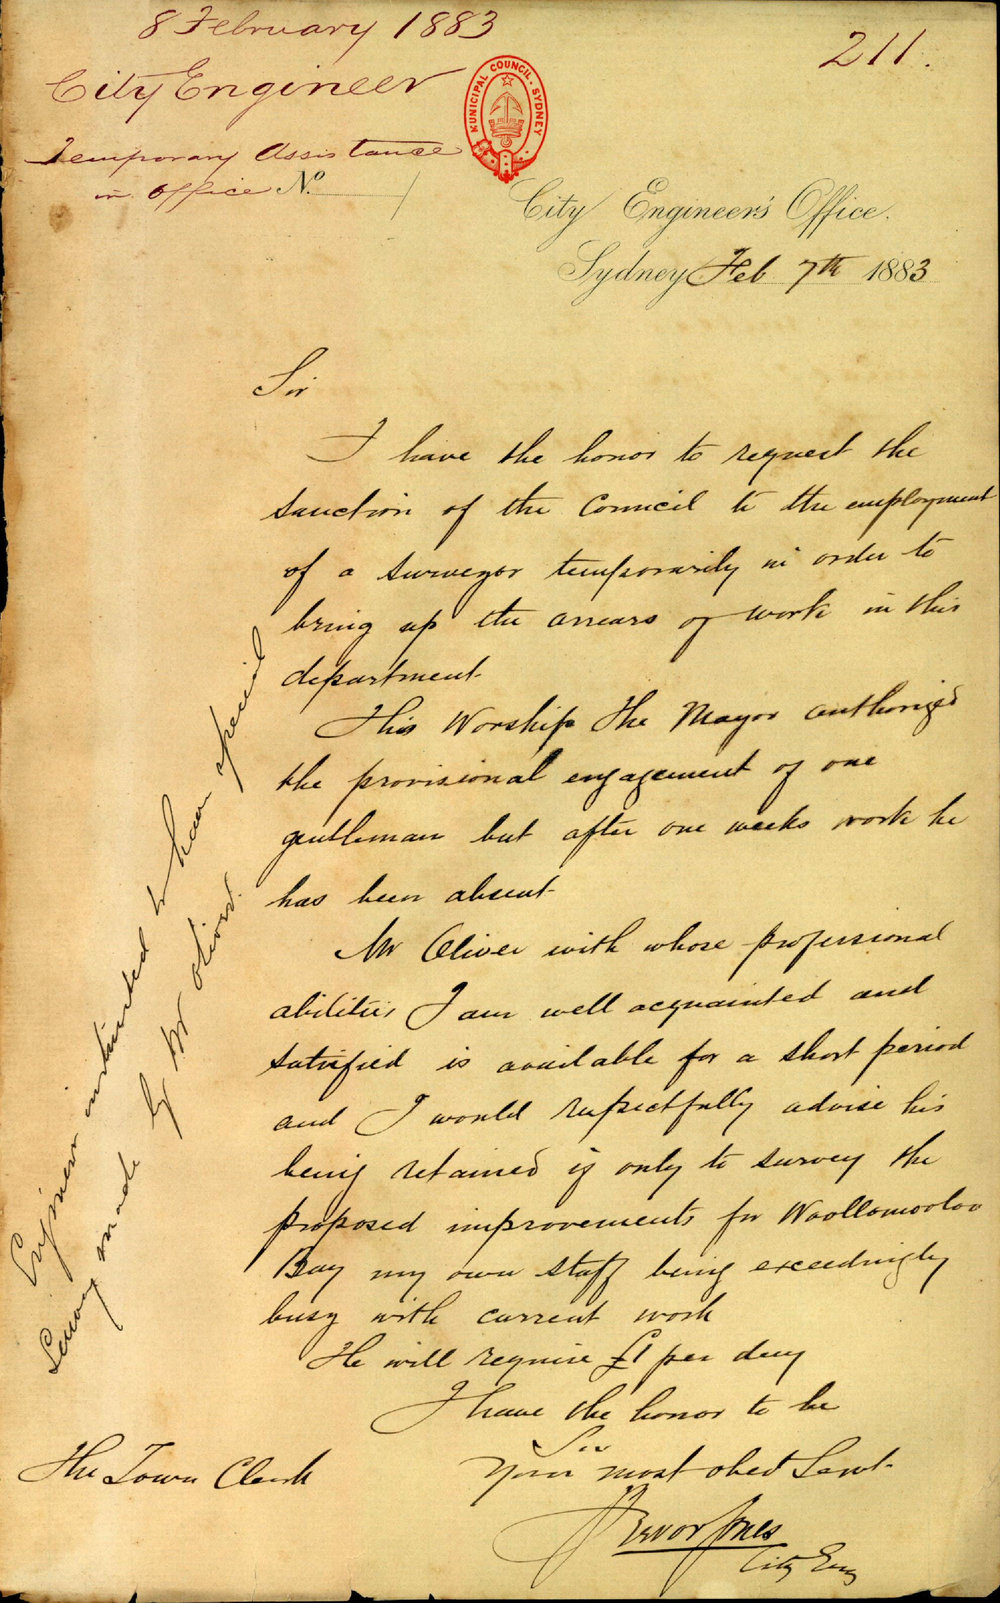 8 February 1883
City Engineer
Temporary Assistance
in Office No.
211.
MUNICIPAL COUNCIL. SYDNEY
City Engineer's Office.
Sydney Feb 7th 1883
Sir
I have the honor to request the
sanction of the Council to the employment
of a surveyor temporarily in order to
bring up the arrears of work in this
department
His Worship the Mayor authorized
the provisional engagement of one
gentleman but after one weeks work he
has been absent
Mr Oliver with whose professional
abilities I am well acquainted and
satisfied is available for a short period
and I would respectfully advise his
being retained if only to survey the
proposed improvements for Woollomooloo
Bay my own staff being exceedingly
busy with current work
He will require £1 per day
I have the honor to be
Sir
Your most obed Servt
Trevor Jones
City Eng
The Town Clerk
Engineer instructed to have special
Survey made by Mr Oliver.